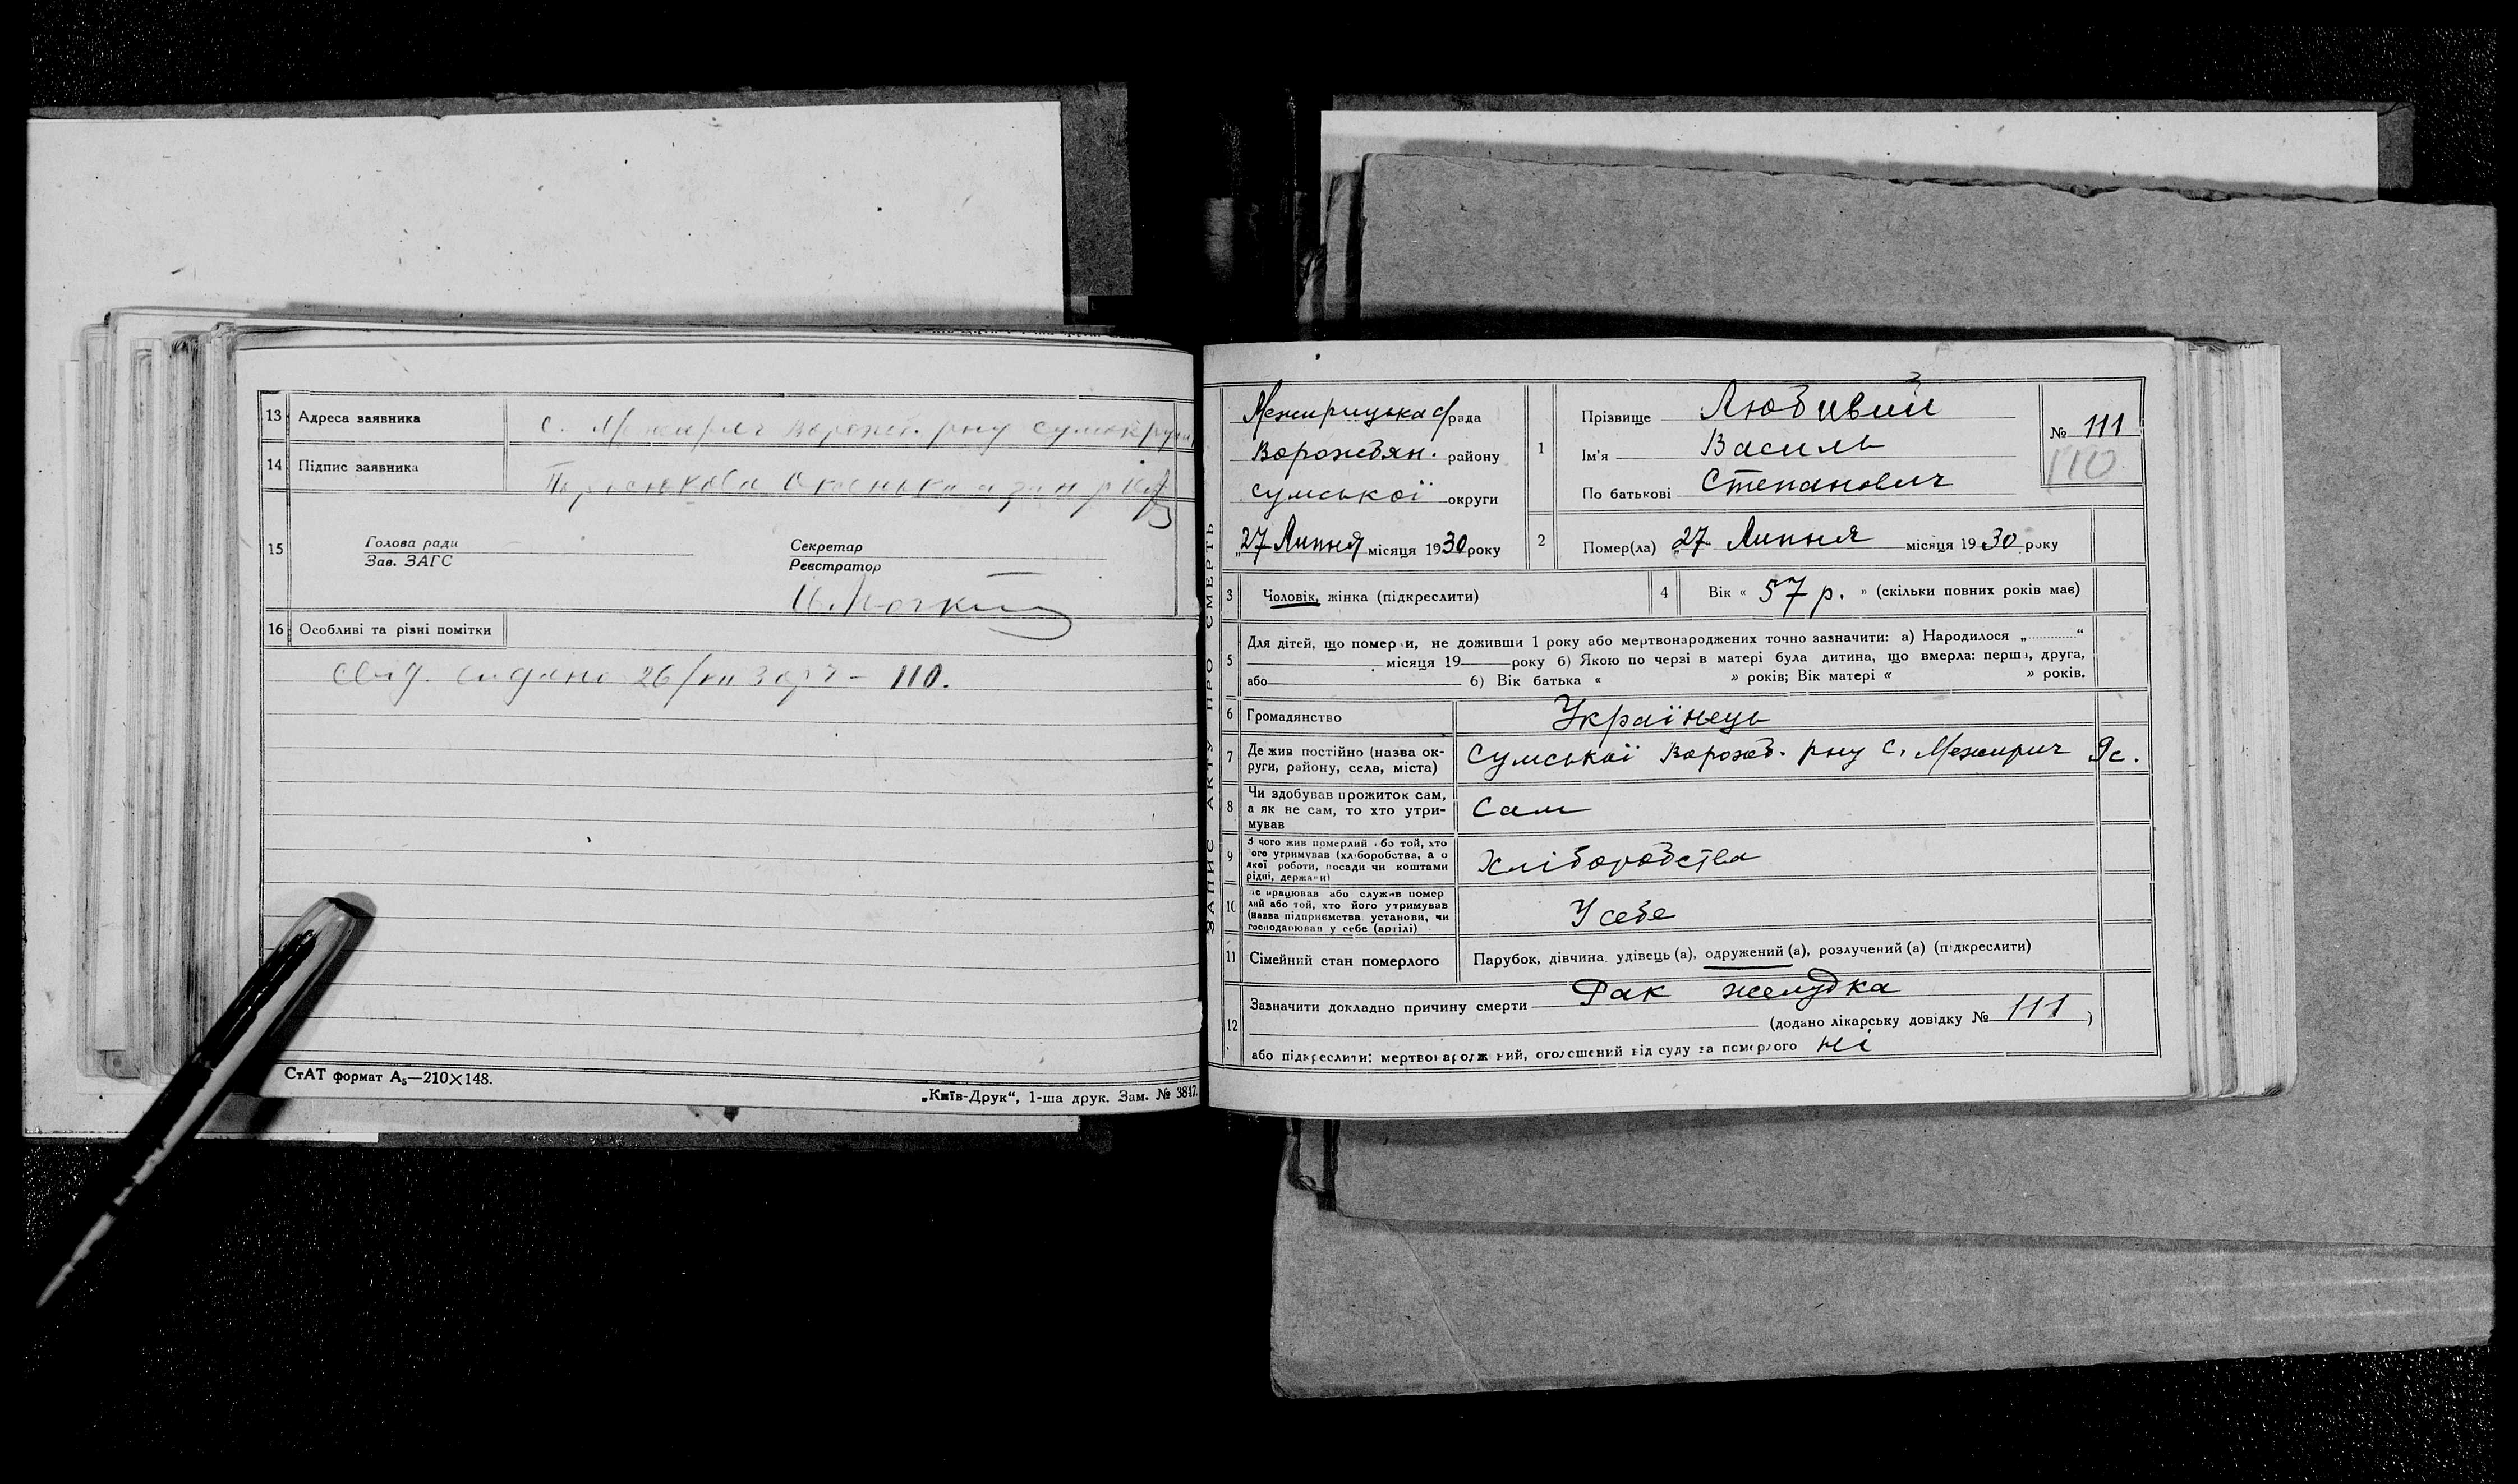 13 Адреса заявника с. Межирич Ворожб. р-ну Сумокруги
14 Підпис заявника
15 Голова ради
Зав. ЗАГС
Секретар
Реєстратор
16 Особливі та різні помітки
Свід. видано 26/VII 30 р. – 110.
СтАТ формат А₅—210×148.
„Київ-Друк“, 1-ша друк. Зам. № 3847.
ЗАПИС АКТУ ПРО СМЕРТЬ
Межирицька с/рада
Ворожбян. району
Сумської округи
„27 Липня місяця 1930 року
1 Прізвище Любивий
Ім'я Василь
По батькові Степанович
№ 111
110
2 Помер(ла) „27 Липня місяця 1930 року
3 Чоловік, жінка (підкреслити)
4 Вік « 57 р. » (скільки повних років має)
5 Для дітей, що померли, не доживши 1 року або мертвонароджених точно зазначити: а) Народилося „ “
місяця 19 року б) Якою по черзі в матері була дитина, що вмерла: перша, друга,
або б) Вік батька « » років; Вік матері « » років.
6 Громадянство Українець
7 Де жив постійно (назва округи, району, села, міста) Сумської Ворожб. р-ну с. Межирич 9с.
8 Чи здобував прожиток сам, а як не сам, то хто утримував Сам
9 З чого жив померлий або той, хто його утримував (хліборобства, а о якої роботи, посади чи коштами рідні, держави) Хліборобства
10 Де працював або служив померлий або той, хто його утримував (назва підприємства, установи, чи господарював у себе (артілі) У себе
11 Сімейний стан померлого Парубок, дівчина, удівець (а), одружений (а), розлучений (а) (підкреслити)
12 Зазначити докладно причину смерти Рак желудка
(додано лікарську довідку № 111 )
або підкреслити: мертвонароджений, оголошений від суду за померлого ні